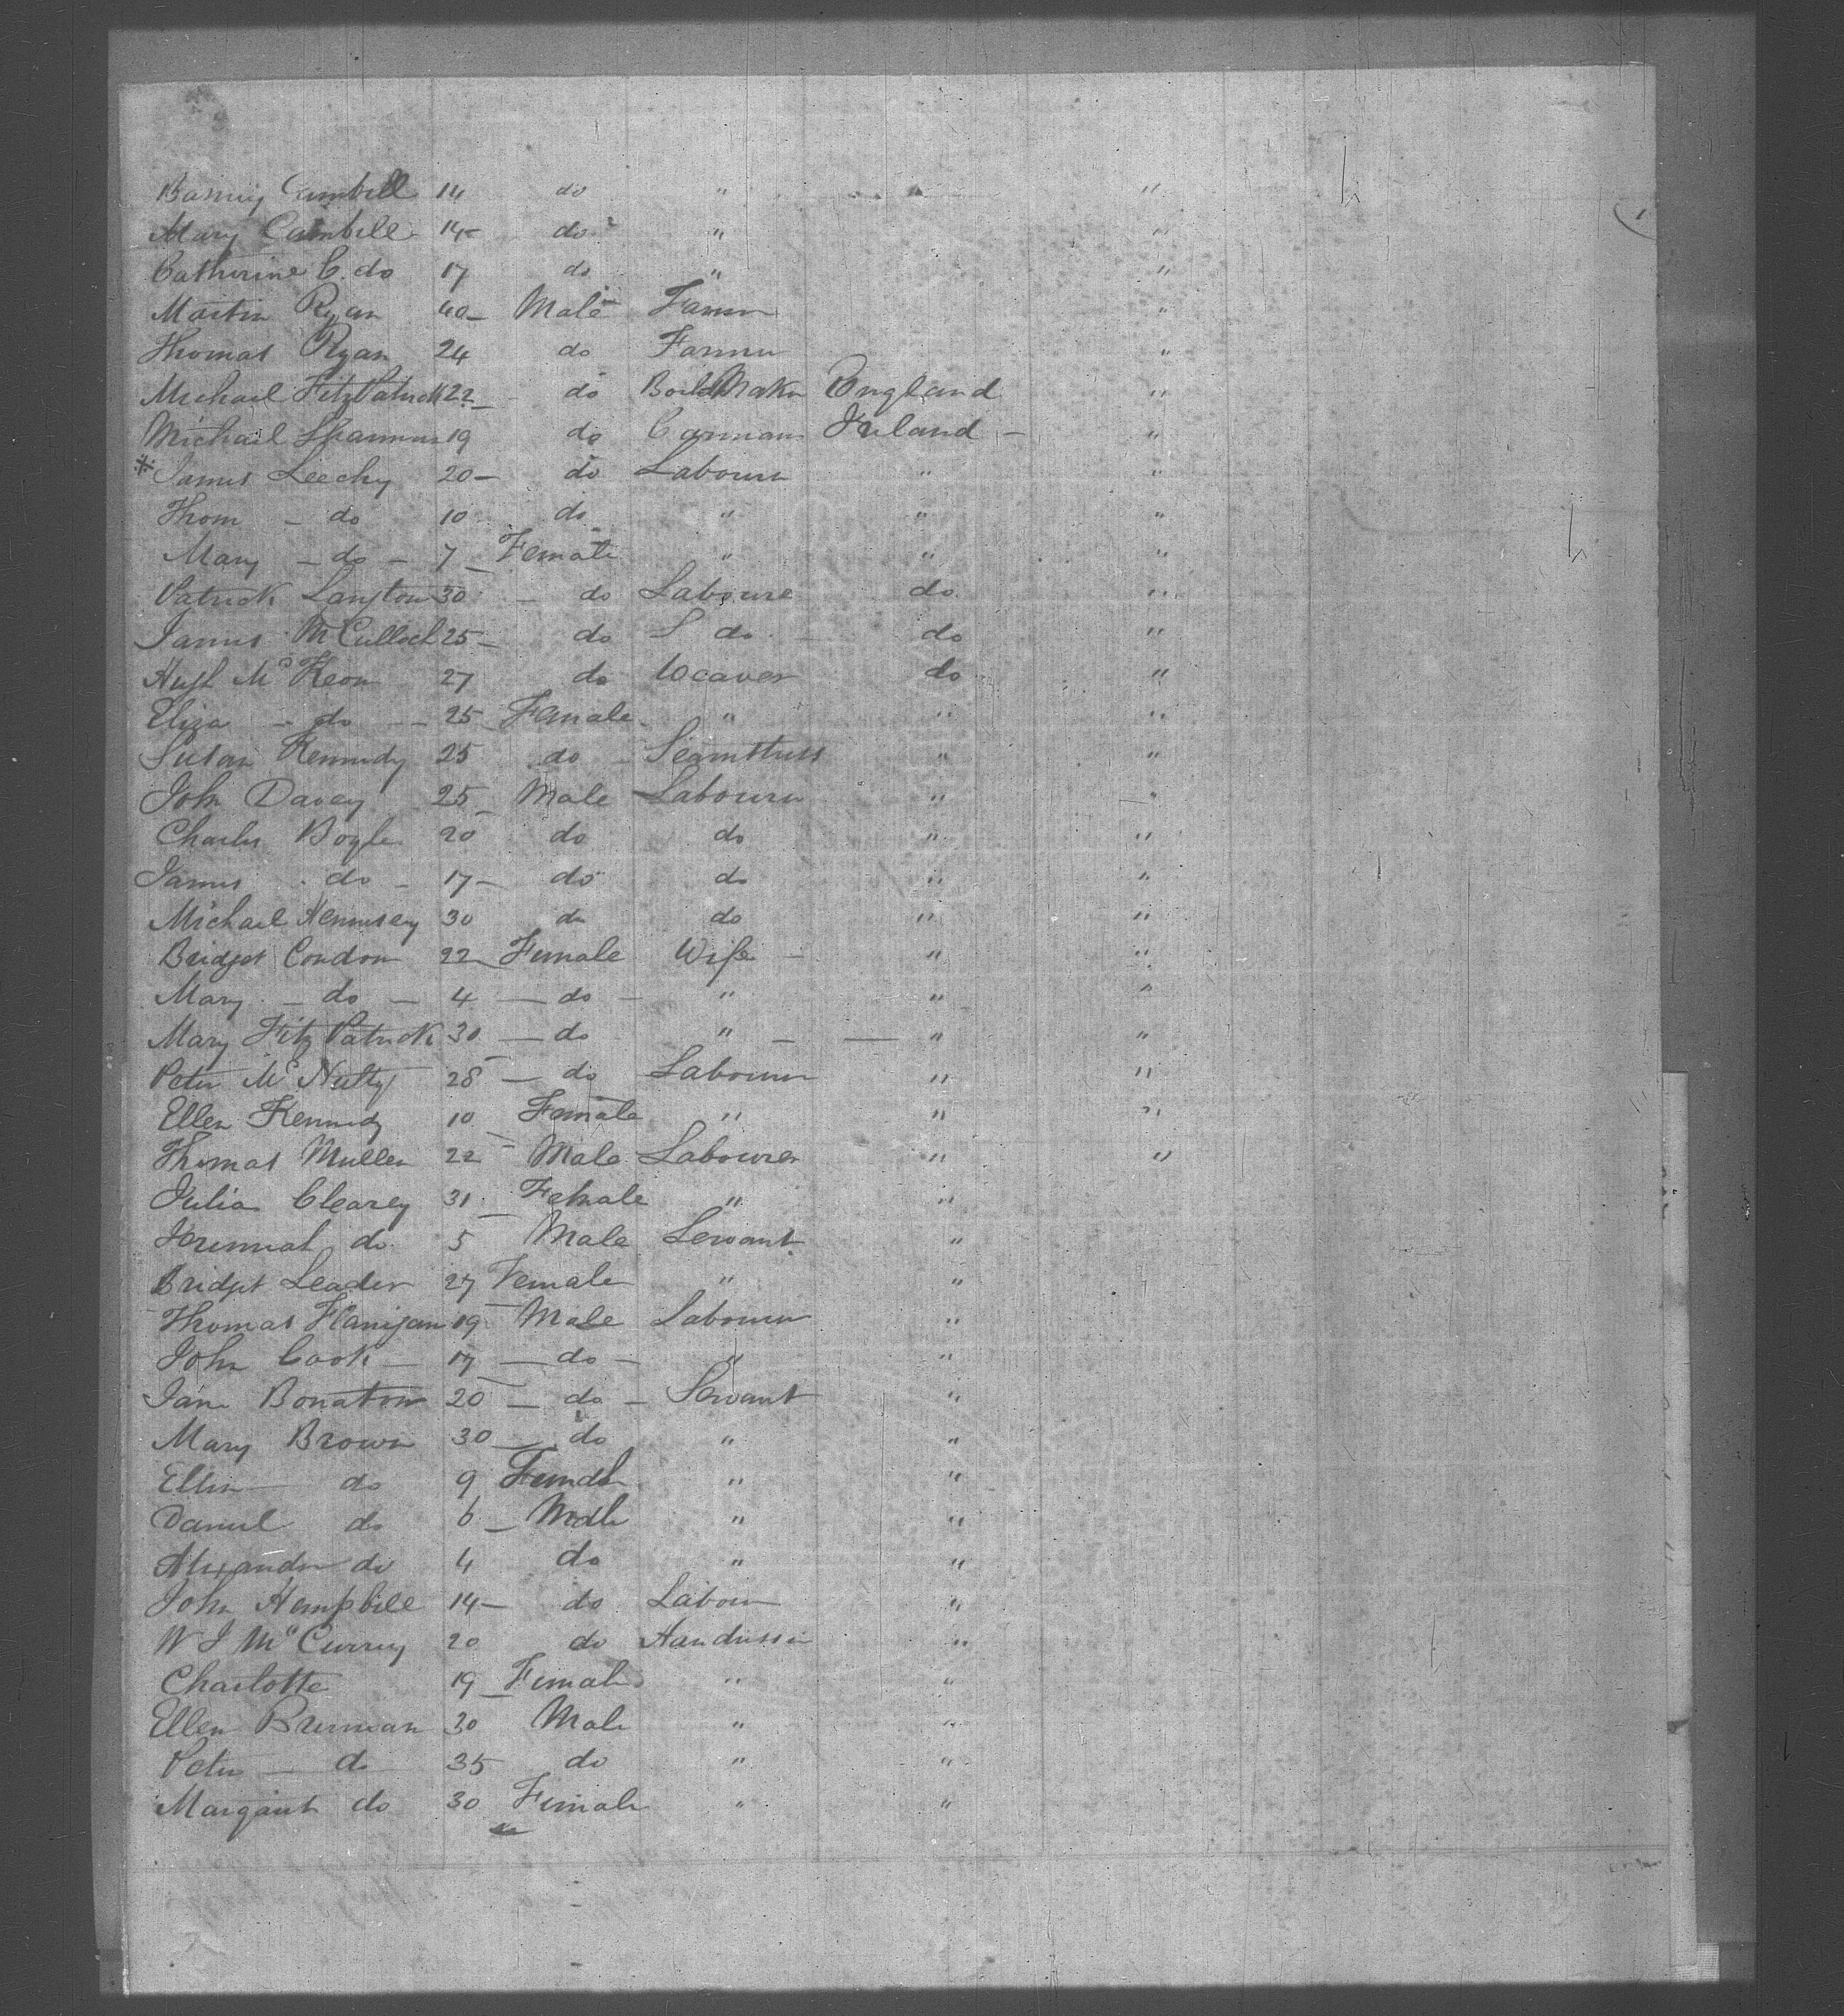 Cumbell 14 do " "
Mary Cambell 14 do " "
Catherine C. do 17 do " "
Martin Ryan 40 Male Farmer "
Thomas Ryan 24 do Farmer "
Michael FitzPatrick 22 do Boile Maker England "
Michael Shannon 19 do Carman Ireland "
* James Leechy 20 do Labourer " "
Thom do 10 do " " "
Mary do 7 Female " " "
Patrick Langton 30 do Laboure do "
James McCulloch 25 do L do do "
Hugh McKeon 27 do Weaver do "
Eliza do 25 Female " " "
Susan Kennedy 25 do Seamstress " "
John Davey 25 Male Labourer " "
Charles Boyle 20 do do " "
James do 17 do do " "
Michael Hennesey 30 do do " "
Bridget Condon 22 Female Wife " "
Mary do 4 do " " "
Mary FitzPatrick 30 do " " "
Peter McNulty 28 do Labourer " "
Ellen Kennedy 10 Female " " "
Thomas Mullen 22 Male Labourer " "
Julia Clearey 31 Female " "
Jeremiah do 5 Male Servant "
Bridget Leader 27 Female " "
Thomas Flanigan 19 Male Labourer "
John Cook 17 do " "
Jane Bonatow 20 do Servant "
Mary Brown 30 do " "
Ellen do 9 Female " "
Daniel do 6 Male " "
Alexander do 4 do " "
John Hemphill 14 do Labour "
W J McCurrey 20 do "
Charlotte 19 Female " "
Ellen Brennan 30 Male " "
Peter do 35 do " "
Margaret do 30 Female " "